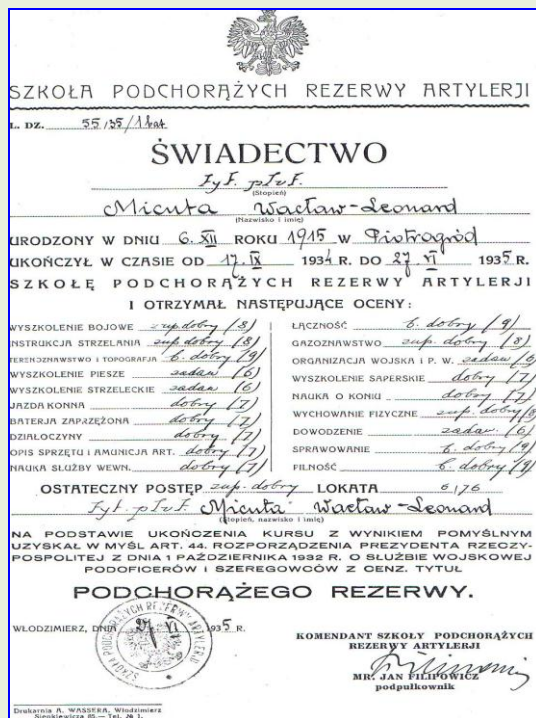 SZKOŁA PODCHORĄŻYCH REZERWY ARTYLERJI
L. DZ. 55/35/1 bat
ŚWIADECTWO
(Stopień)
Micuta Wacław-Leonard
(Nazwisko i imię)
URODZONY W DNIU 6. XII ROKU 1915 W Piotrogród
UKOŃCZYŁ W CZASIE OD 17. IX 1934 R. DO 27 VI 1935 R.
SZKOŁĘ PODCHORĄŻYCH REZERWY ARTYLERJI
I OTRZYMAŁ NASTĘPUJĄCE OCENY:
WYSZKOLENIE BOJOWE zup. dobry (8)
INSTRUKCJA STRZELANIA zup. dobry (8)
TERENOZNAWSTWO I TOPOGRAFJA b. dobry (9)
WYSZKOLENIE PIESZE zadaw (6)
WYSZKOLENIE STRZELECKIE zadaw (6)
JAZDA KONNA dobry (7)
BATERJA ZAPRZĘŻONA dobry (7)
DZIAŁOCZYNY dobry (7)
OPIS SPRZĘTU I AMUNICJA ART. dobry (7)
NAUKA SŁUŻBY WEWN. dobry (7)
ŁĄCZNOŚĆ b. dobry (9)
GAZOZNAWSTWO zup. dobry (8)
ORGANIZACJA WOJSKA I P. W. zadaw (6)
WYSZKOLENIE SAPERSKIE dobry (7)
NAUKA O KONIU dobry (7)
WYCHOWANIE FIZYCZNE zup. dobry (8)
DOWODZENIE zadaw. (6)
SPRAWOWANIE b. dobry (9)
PILNOŚĆ b. dobry (9)
OSTATECZNY POSTĘP zup. dobry LOKATA 6/76
Micuta Wacław-Leonard
(Stopień, nazwisko i imię)
NA PODSTAWIE UKOŃCZENIA KURSU Z WYNIKIEM POMYŚLNYM
UZYSKAŁ W MYŚL ART. 44. ROZPORZĄDZENIA PREZYDENTA RZECZY-
POSPOLITEJ Z DNIA 1 PAŹDZIERNIKA 1932 R. O SŁUŻBIE WOJSKOWEJ
PODOFICERÓW I SZEREGOWCÓW Z CENZ. TYTUŁ
PODCHORĄŻEGO REZERWY.
WŁODZIMIERZ, DNIA 27 VI 1935 R.
SZKOŁA PODCHORĄŻYCH REZERWY ARTYLERJI
KOMENDANT SZKOŁY PODCHORĄŻYCH
REZERWY ARTYLERJI
MR. JAN FILIPOWICZ
podpułkownik
Drukarnia A. WASSERA, Włodzimierz
Sienkiewicza 85.— Tel. № 1.